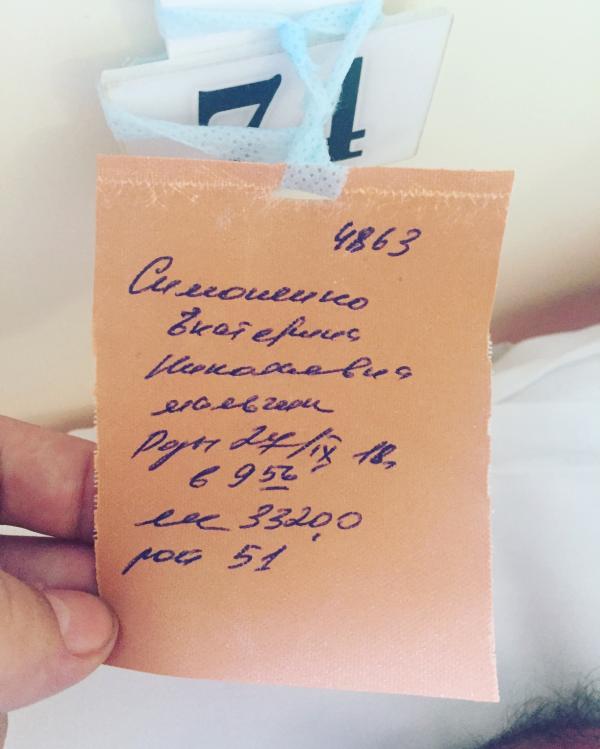 74
4863
Симоненко
Екатерина
Николаевна
мальчик
Родн 27/IX 18,
в 9 50
м 3320,0
рост 51